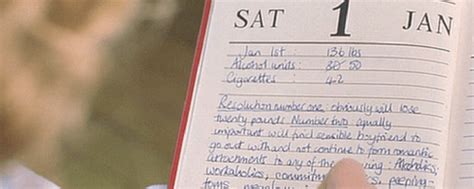 SAT 1 JAN
Jan 1st: 136 lbs
Alcohol units: 50
Cigarettes: 42
Resolution number one: obviously will lose
twenty pounds. Number two, equally
important will find sensible boyfriend to
go out with and not continue to form romantic
attachments to any of the : Alcoholics,
workaholics, peeping-
toms